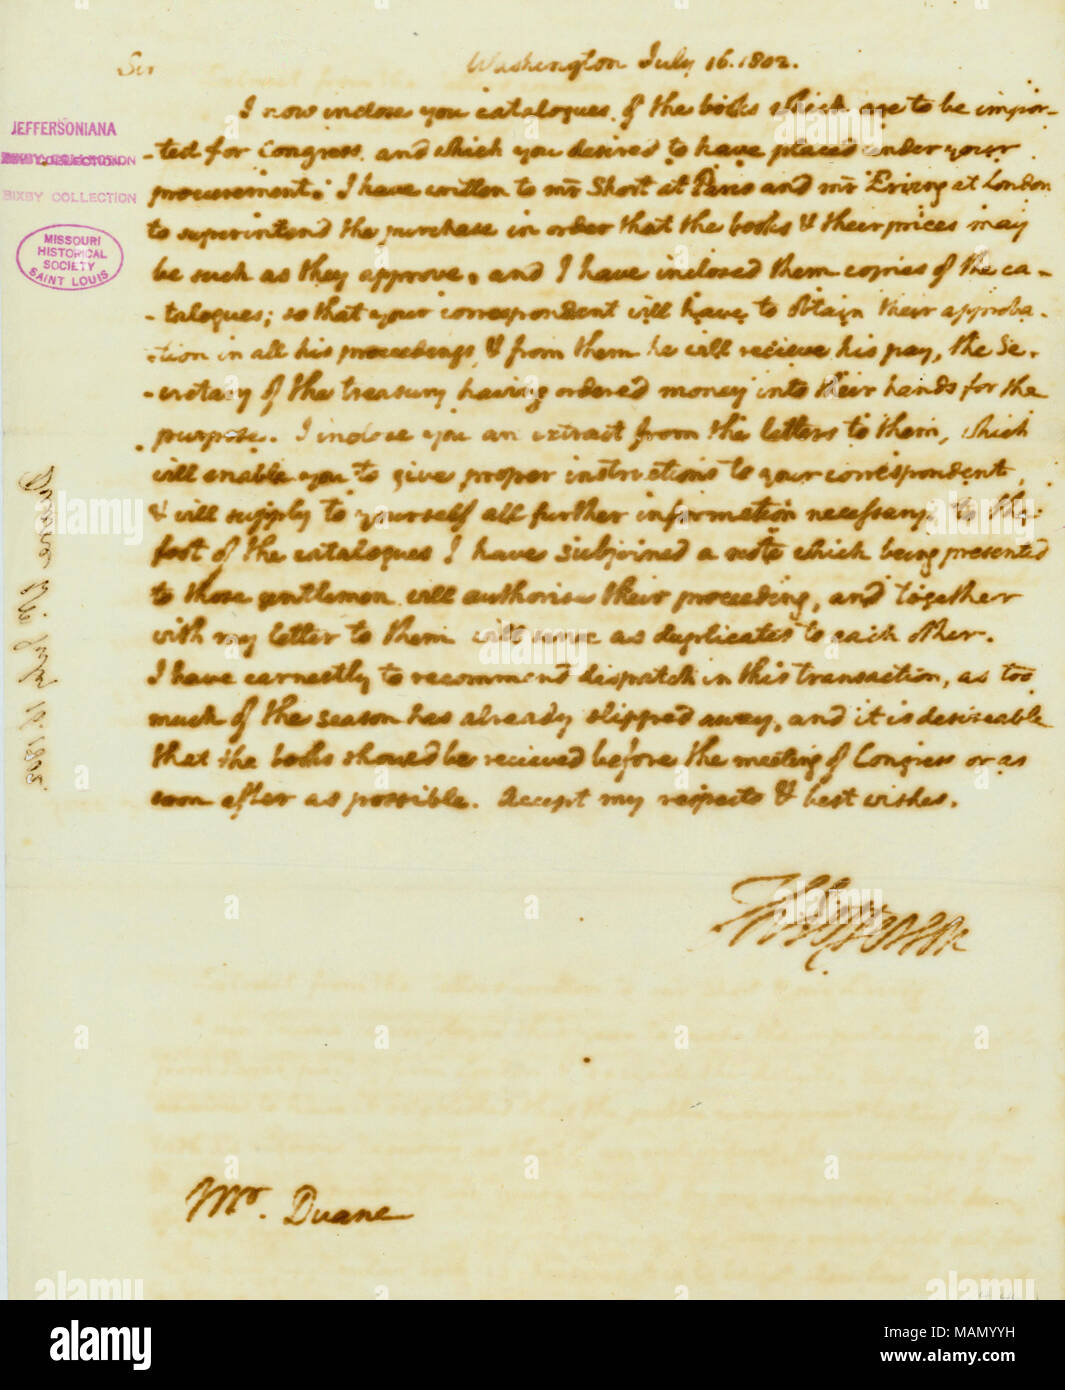 Sir
Washington July 16. 1802.
I now inclose you catalogues of the books which are to be impor-
-ted for Congress, and which you desired to have placed under your
procurement. I have written to mr Short at Paris and mr Erving at London
to superintend the purchase in order that the books & their prices may
be such as they approve, and I have inclosed them copies of the ca-
-talogues; so that your correspondent will have to obtain their approba-
-tion in all his proceedings & from them he will recieve his pay, the Se-
-cretary of the treasury having ordered money into their hands for the
purpose. I inclose you an extract from the letters to them, which
will enable you to give proper instructions to your correspondent,
& will supply to yourself all further information necessary. to the
foot of the catalogues I have subjoined a note which being presented
to those gentlemen will authorise their proceeding, and together
with my letter to them will serve as duplicates to each other.
I have earnestly to recommend dispatch in this transaction, as too
much of the season has already slipped away, and it is desireable
that the books should be recieved before the meeting of Congress or as
soon after as possible. Accept my respects & best wishes.
Th: Jefferson
Mr. Duane
JEFFERSONIANA
BIXBY COLLECTION
BIXBY COLLECTION
MISSOURI
HISTORICAL
SOCIETY
SAINT LOUIS
alamy
Image ID: MAMYYH
www.alamy.com